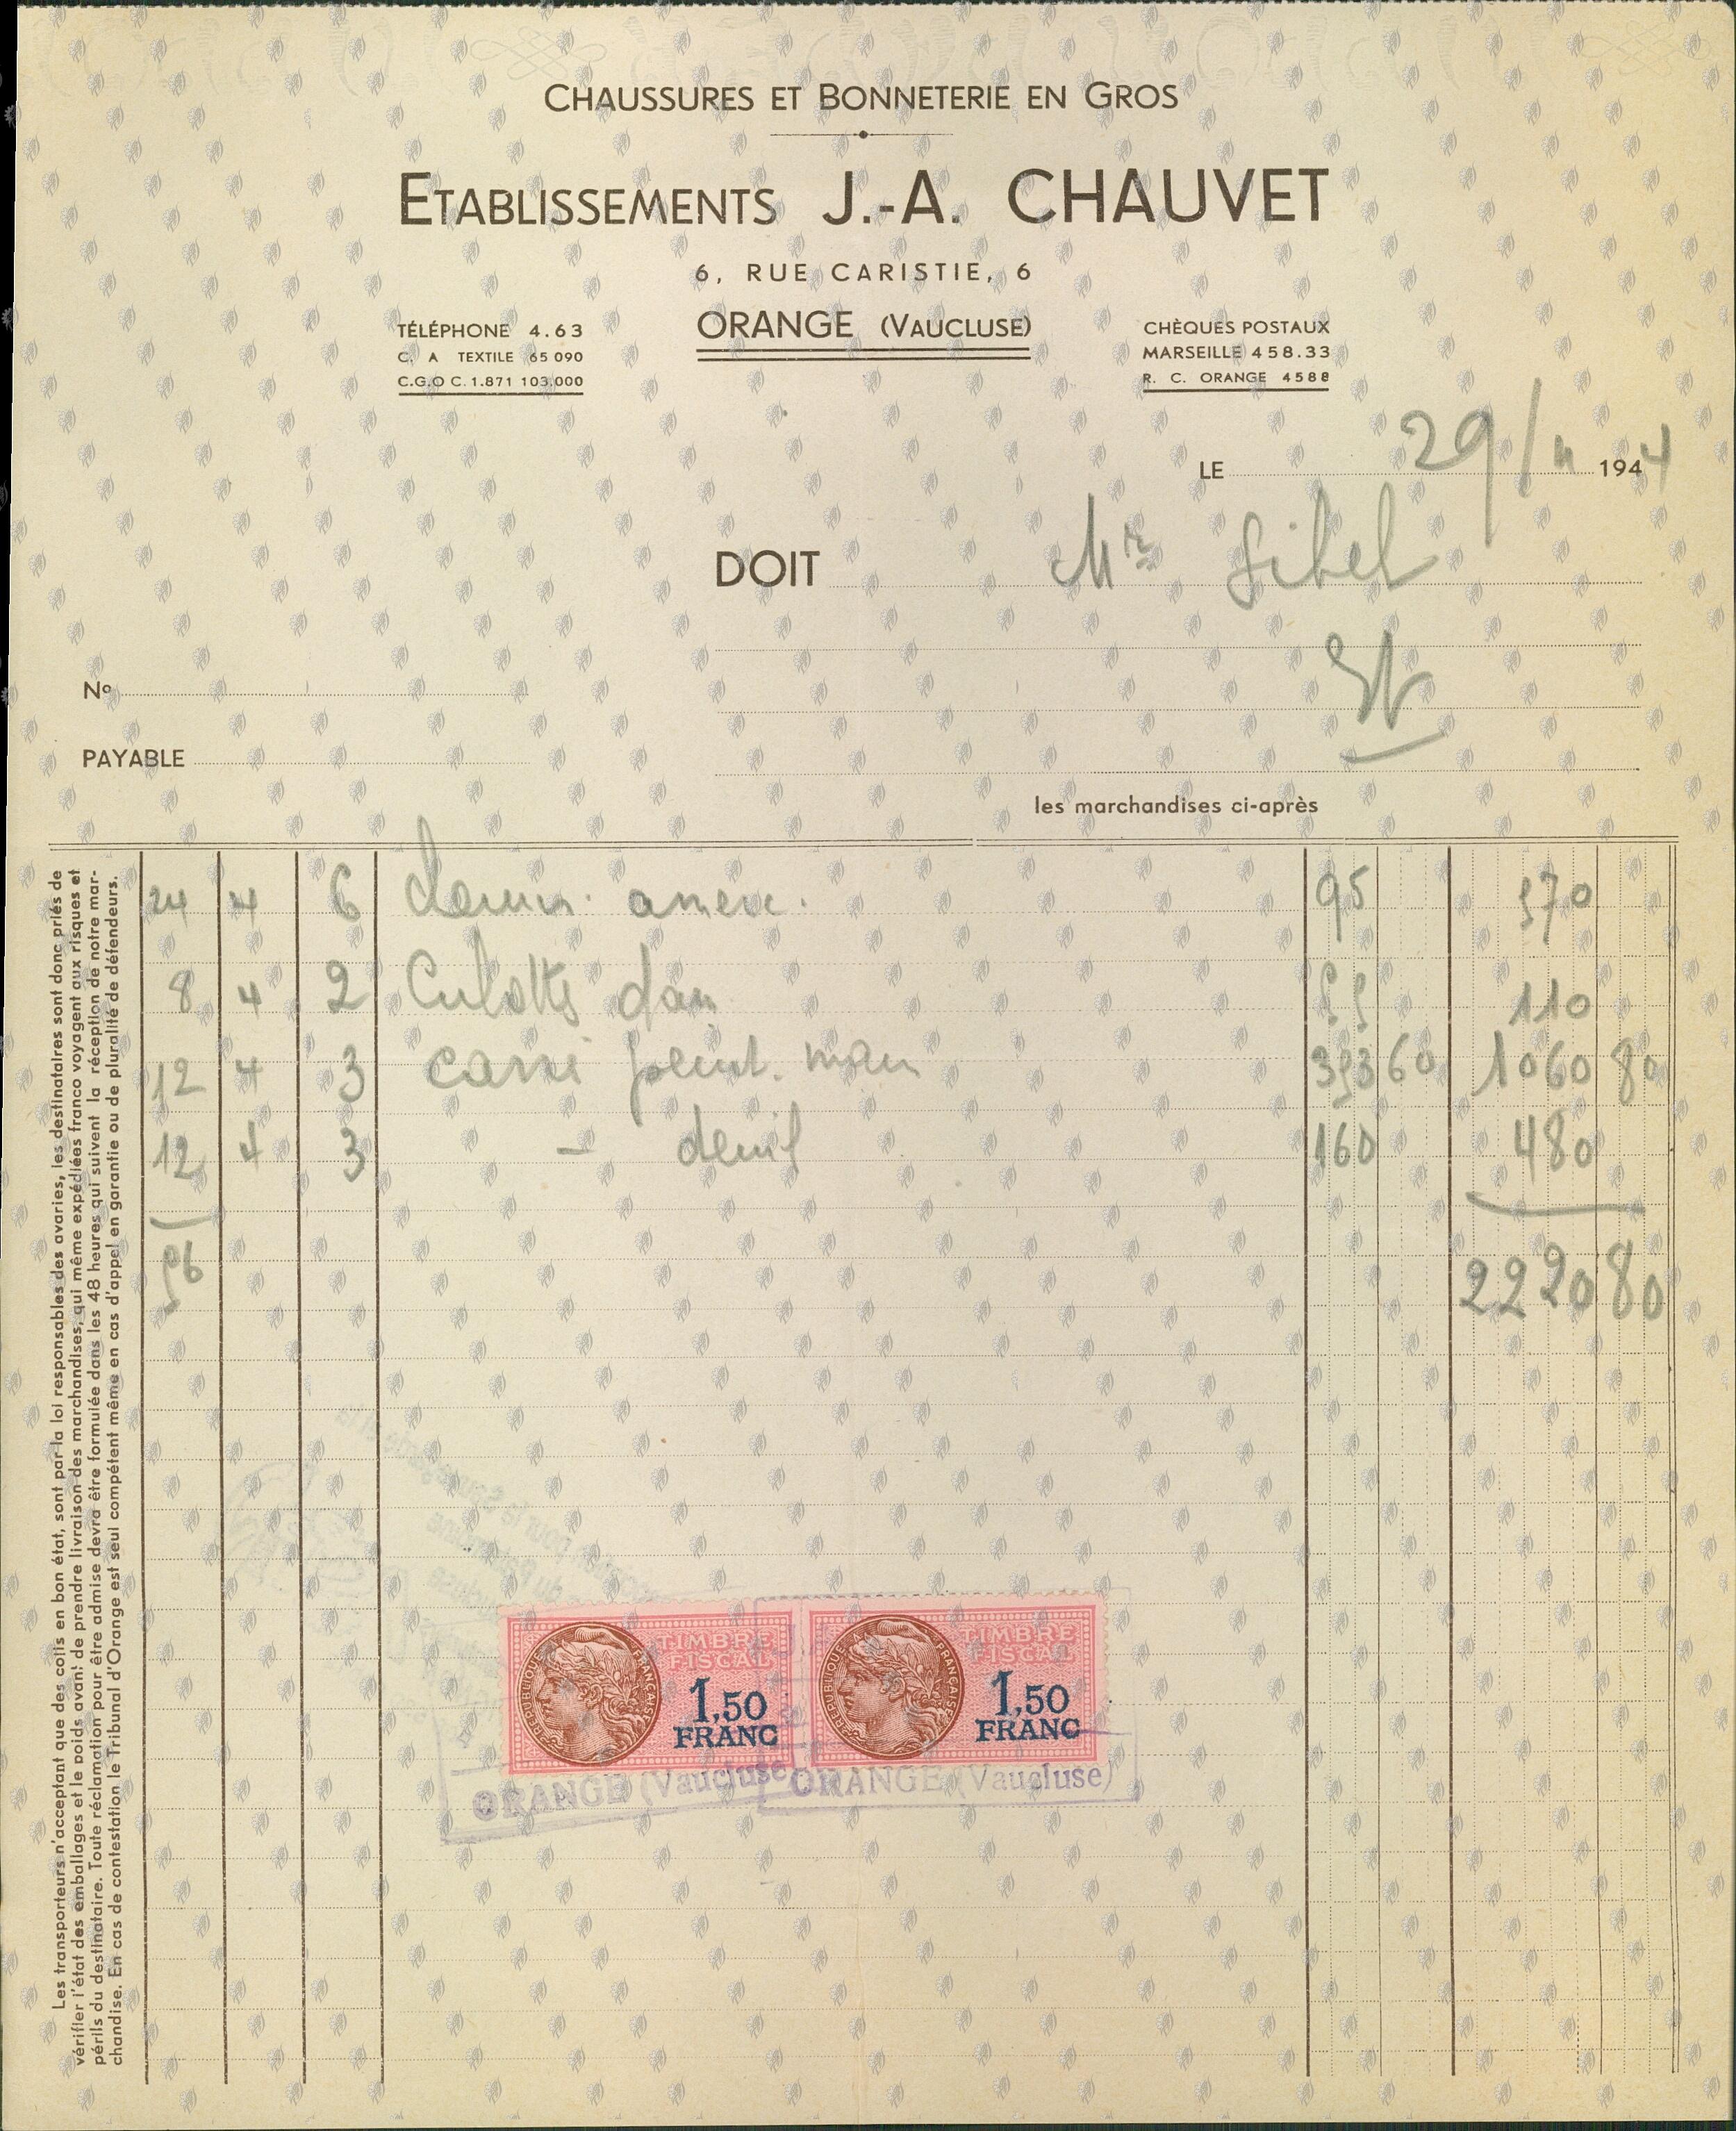 CHAUSSURES ET BONNETERIE EN GROS
ETABLISSEMENTS J.-A. CHAUVET
6, RUE CARISTIE, 6
ORANGE (VAUCLUSE)
TÉLÉPHONE 4.63
C. A TEXTILE 65 090
C.G.O C. 1.871 103.000
CHÈQUES POSTAUX
MARSEILLE 458.33
R. C. ORANGE 4588
LE 29/11 1944
DOIT Mr Gibel
No
PAYABLE
les marchandises ci-après
24 4 6 95 570
8 4 2 Culotts dam 55 110
12 4 3 carré 353 60 1060 80
12 4 3 - deuil 160 480
56 2220 80
Les transporteurs n'acceptant que des colis en bon état, sont par la loi responsables des avaries, les destinataires sont donc priés de
vérifier l'état des emballages et le poids avant de prendre livraison des marchandises, qui même expédiées franco voyagent aux risques et
périls du destinataire. Toute réclamation pour être admise devra être formulée dans les 48 heures qui suivent la réception de notre mar-
chandise. En cas de contestation le Tribunal d'Orange est seul compétent même en cas d'appel en garantie ou de pluralité de défendeurs.
RÉPUBLIQUE FRANÇAISE
TIMBRE
FISCAL
1,50
FRANC
RÉPUBLIQUE FRANÇAISE
TIMBRE
FISCAL
1,50
FRANC
ORANGE (Vaucluse
ORANGE (Vaucluse)